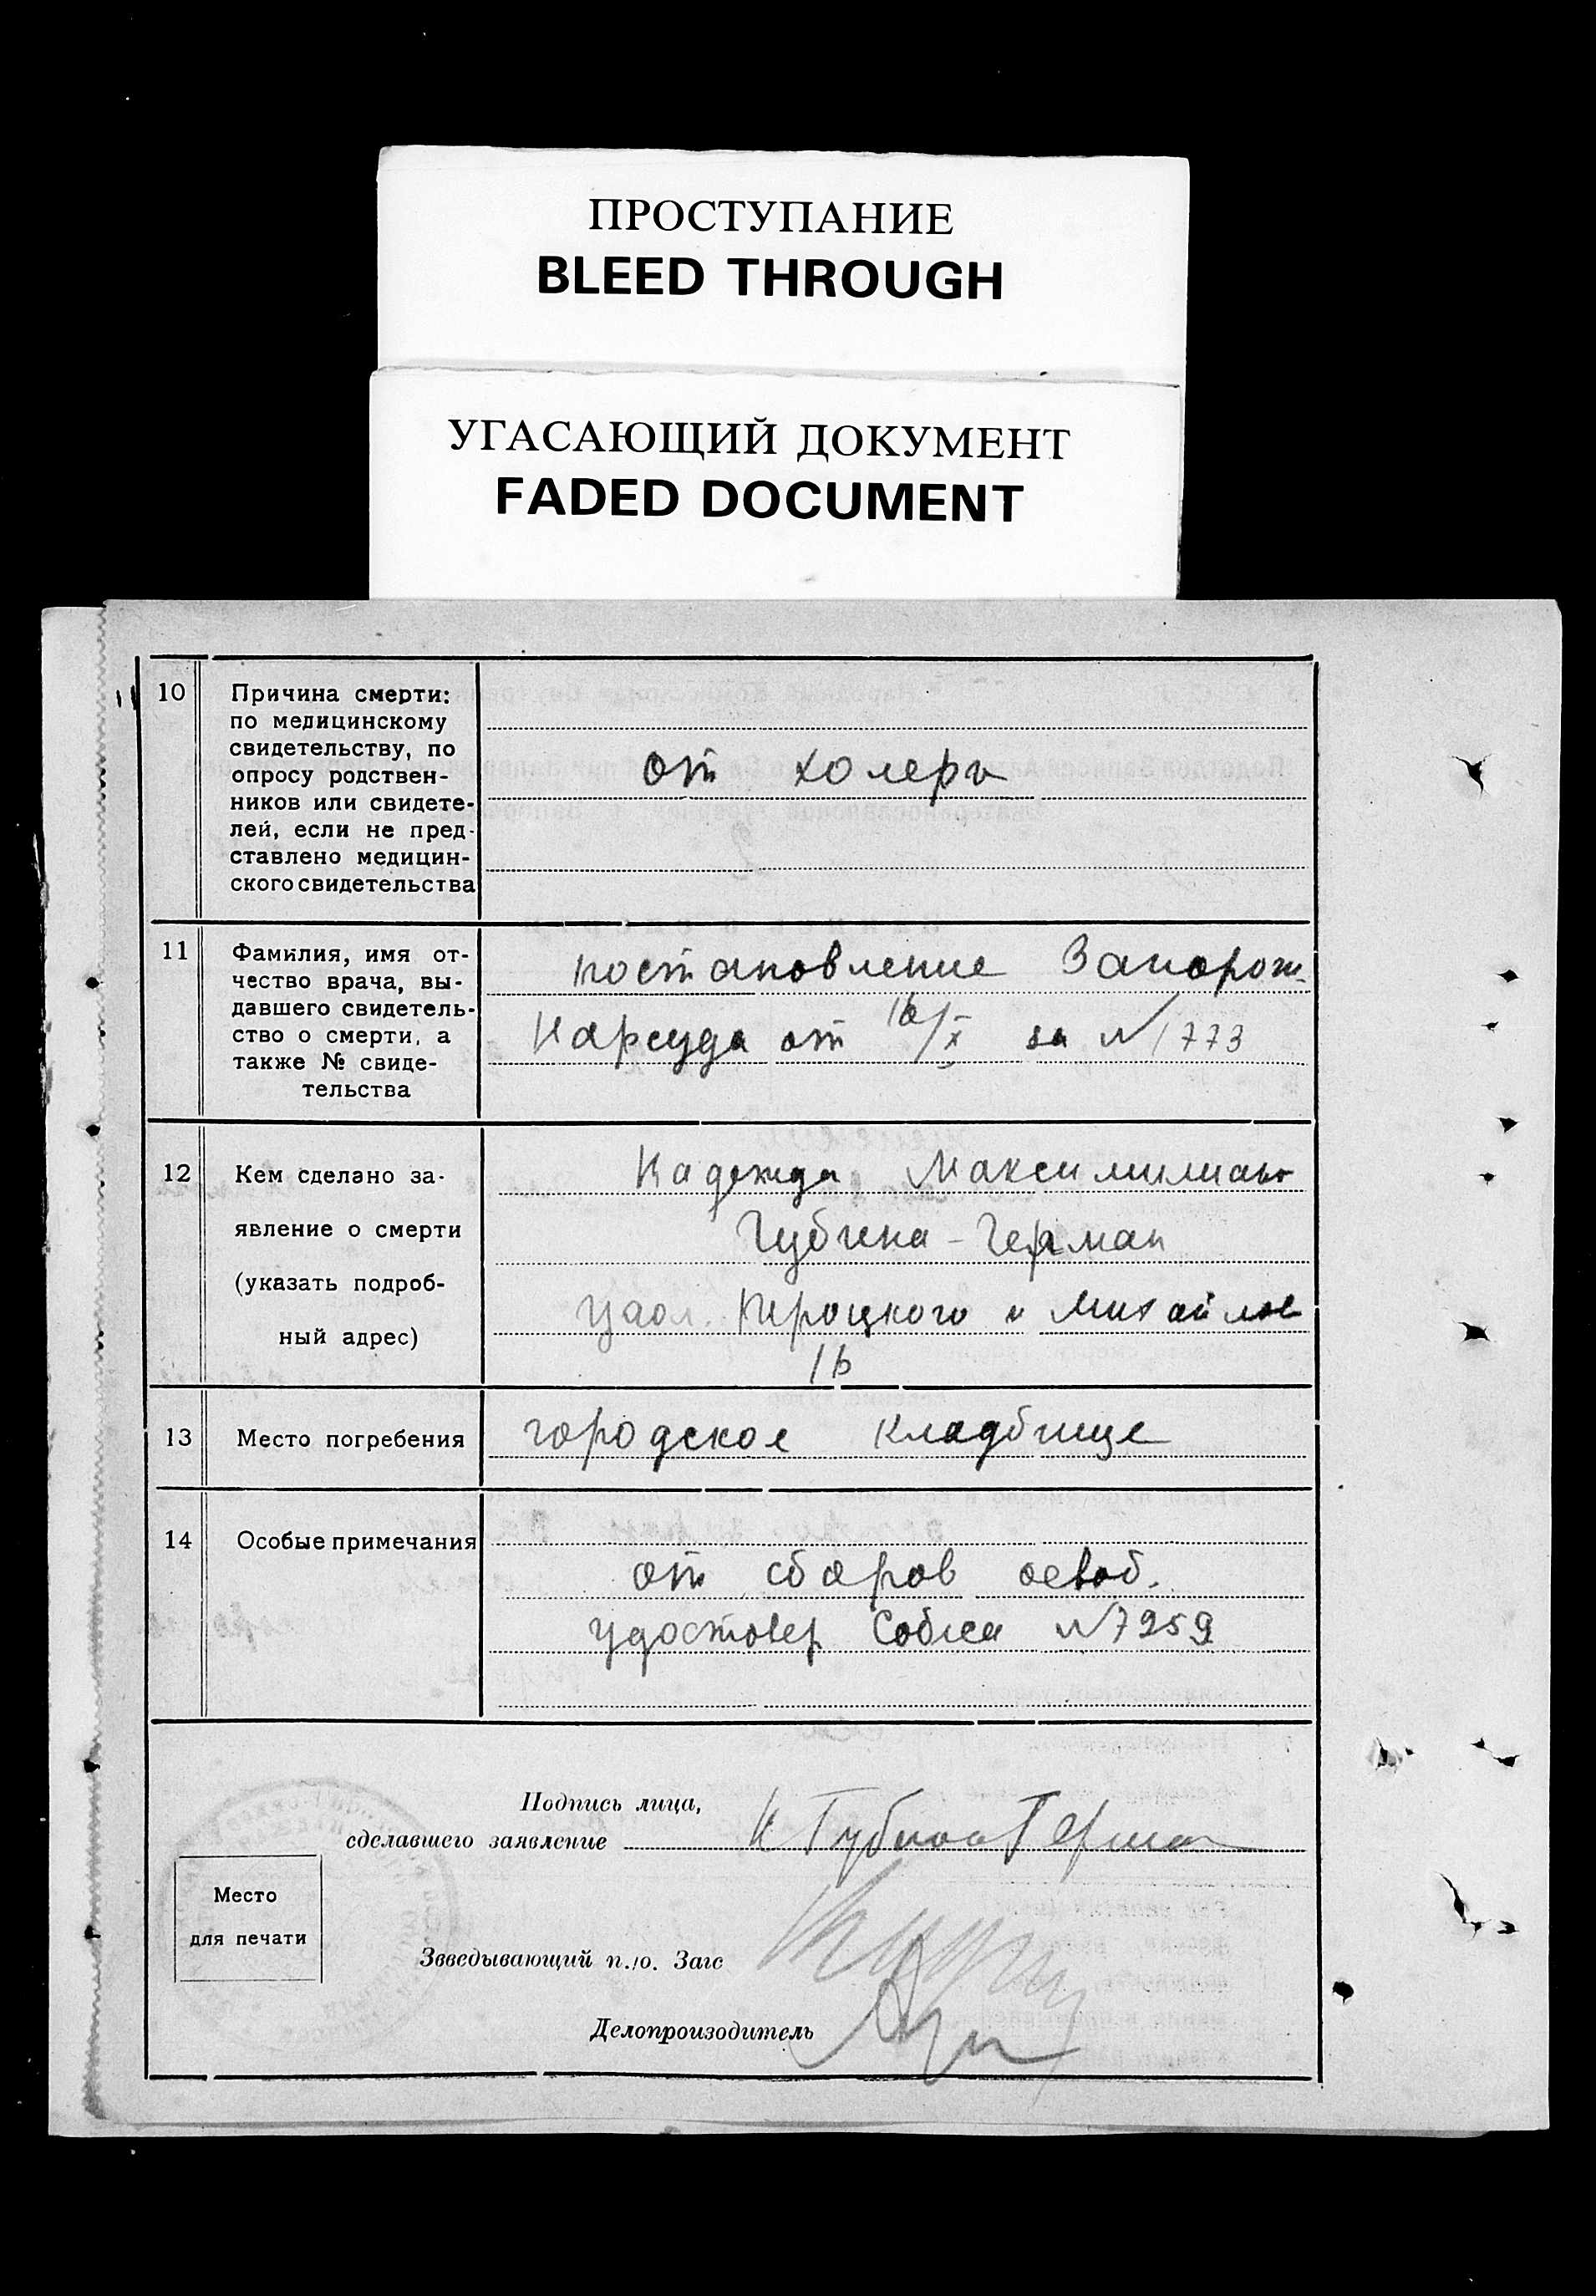 ПРОСТУПАНИЕ
BLEED THROUGH
УГАСАЮЩИЙ ДОКУМЕНТ
FADED DOCUMENT
10
Причина смерти:
по медицинскому
свидетельству, по
опросу родствен-
ников или свидете-
лей, если не пред-
ставлено медицин-
ского свидетельства
от холеры
11
Фамилия, имя от-
чество врача, вы-
давшего свидетель-
ство о смерти, а
также № свиде-
тельства
постановление Запорож.
Нарсуда от 16/X за N 1773
12
Кем сделано за-
явление о смерти
(указать подроб-
ный адрес)
Надежда Максимилиан
Губина-Герман
Троцкого и Михайлов
16
13
Место погребения
городское кладбище
14
Особые примечания
от сборов освоб.
удостовер Собеса N 7259
Подпись лица,
сделавшего заявление
Н Губина Герман
Место
для печати
Зведывающий п./о. Загс
Делопроизводитель